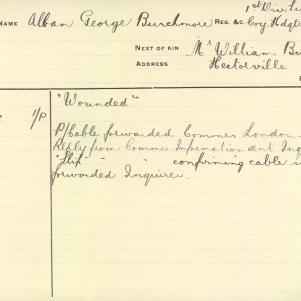 1st Div.
NAME Alban George Burchmore REG. &C. Coy Hdqt
NEXT OF KIN Mr William Bu
ADDRESS Hectorville
"Wounded"
P/Cable forwarded Commrs London
Reply from Commrs Information sent Inq
"Slip" " " confirming cable
forwarded Inquirer.